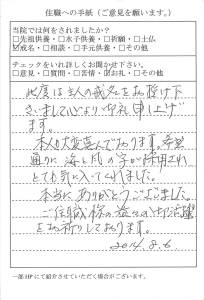 住職への手紙（ご意見を願います。）
当院では何をされましたか？
□先祖供養・□水子供養・□祈願・□土仏
☑戒名・□相談・□手元供養・□その他
チェックをいれ詳しくお聞かせ下さい。
□意見・□質問・□苦情・☑お礼・□その他
此度は主人の戒名をお授け下
さいまして心よりお礼申し上げ
ます。
本人も大変喜んでおります。希望
通りに海と風の字が採用され
とても気に入ってくれました。
本当にありがとうございました。
ご住職様の益々のご活躍
をお祈りしております。
2014.8.6
一部HPにて紹介させていただく場合がございます。